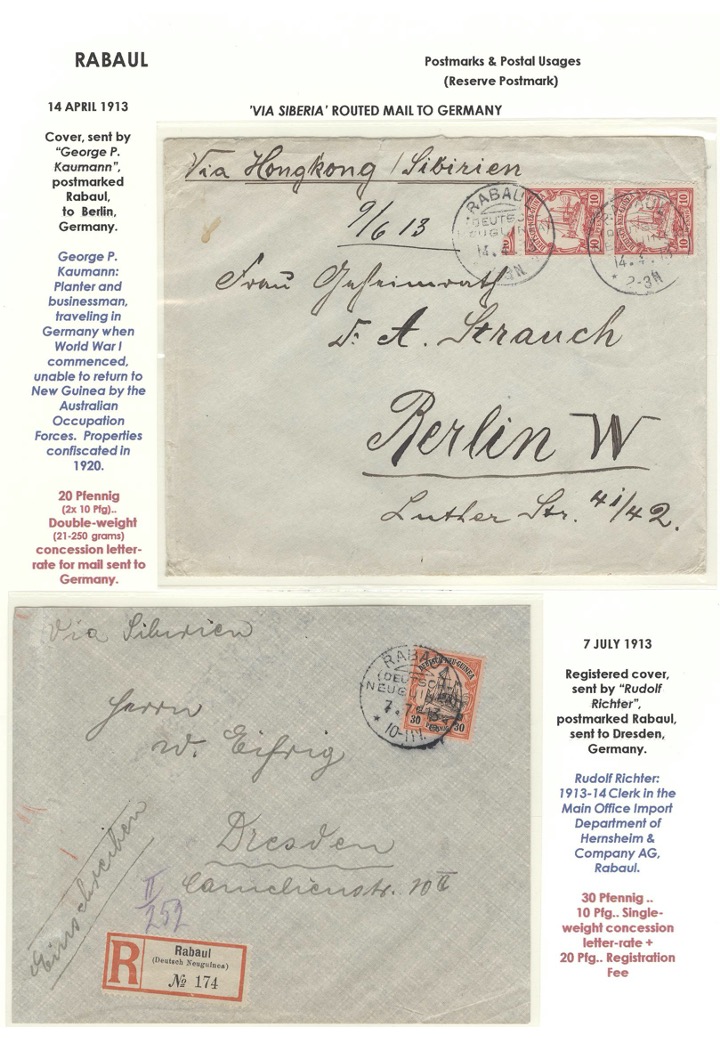 RABAUL
Postmarks & Postal Usages
(Reserve Postmark)
14 APRIL 1913
'VIA SIBERIA' ROUTED MAIL TO GERMANY
Cover, sent by
"George P.
Kaumann",
postmarked
Rabaul,
to Berlin,
Germany.
George P.
Kaumann:
Planter and
businessman,
traveling in
Germany when
World War I
commenced,
unable to return to
New Guinea by the
Australian
Occupation
Forces. Properties
confiscated in
1920.
20 Pfennig
(2x 10 Pfg)..
Double-weight
(21-250 grams)
concession letter-
rate for mail sent to
Germany.
Via Hongkong / Sibirien
9/6 13
Frau Geheimrath
Dr. A. Strauch
Berlin W
Luther Str. 41/42.
RABAUL
(DEUTSCH
NEUGUIN
14.4
10 10
10 10
14.4.13
* 2-3N
7 JULY 1913
Registered cover,
sent by "Rudolf
Richter",
postmarked Rabaul,
sent to Dresden,
Germany.
Rudolf Richter:
1913-14 Clerk in the
Main Office Import
Department of
Hernsheim &
Company AG,
Rabaul.
30 Pfennig ..
10 Pfg.. Single-
weight concession
letter-rate +
20 Pfg.. Registration
Fee
Via Siberien
Herrn
W. Eifrig
Dresden
Einschreiben
II
252
RABAUL
(DEUTSCH-
NEUGUINEA)
7.7.13
* 10-11V.
30 30
R
Rabaul
(Deutsch Neuguinea)
№ 174